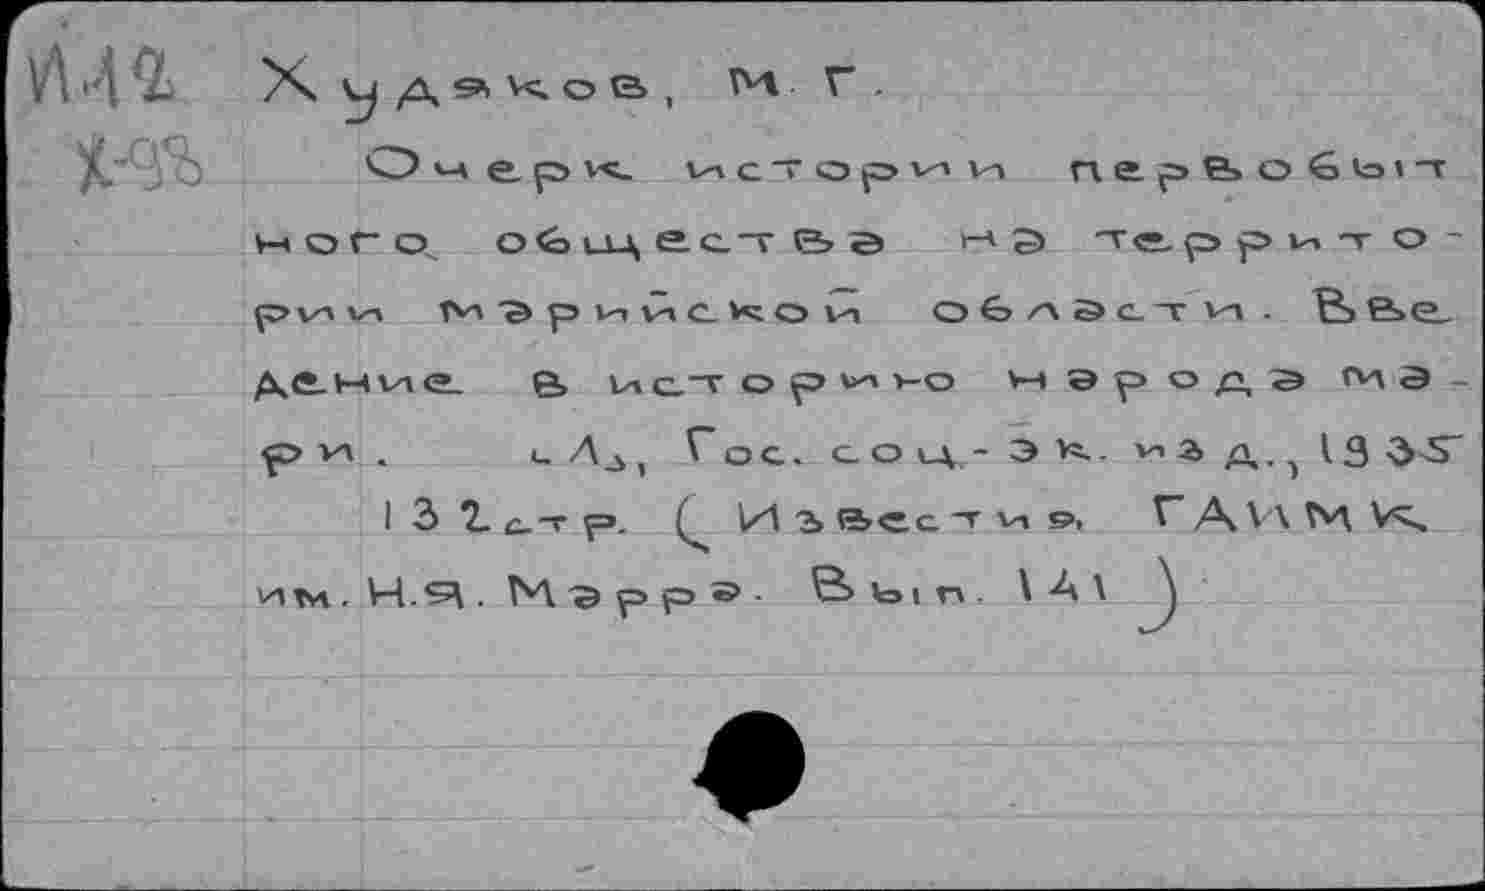 И42 Худяков, М Г.
Х-98 Очерк истории первобыт
ного общества на террито-
рии Марийской области. Вве
дение в историю народа ма-
ри. Л., Гос. соц.-эк. изд., 1935
132 стр. (Известия ГАИМК
им. Н.Я. Марра. Вып. 141)